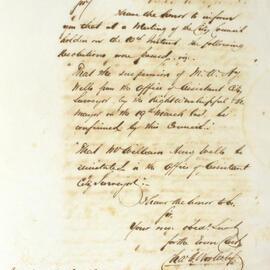 Sir
I have the honor to inform
you that at a Meeting of the City Council
holden on the 10th Instant the following
Resolutions were passed, viz.
"That the suspension of W. A. Ay
Wells from the Office of Assistant City
Surveyor by the Right Worshipful the
Mayor on the 19th March last be
confirmed by this Council"
"That Mr William Amy Wells be
reinstated in the Office of Assistant
City Surveyor".
I have the honor &c.
Sir
Your mo. obed. Servt
for the Town Clerk